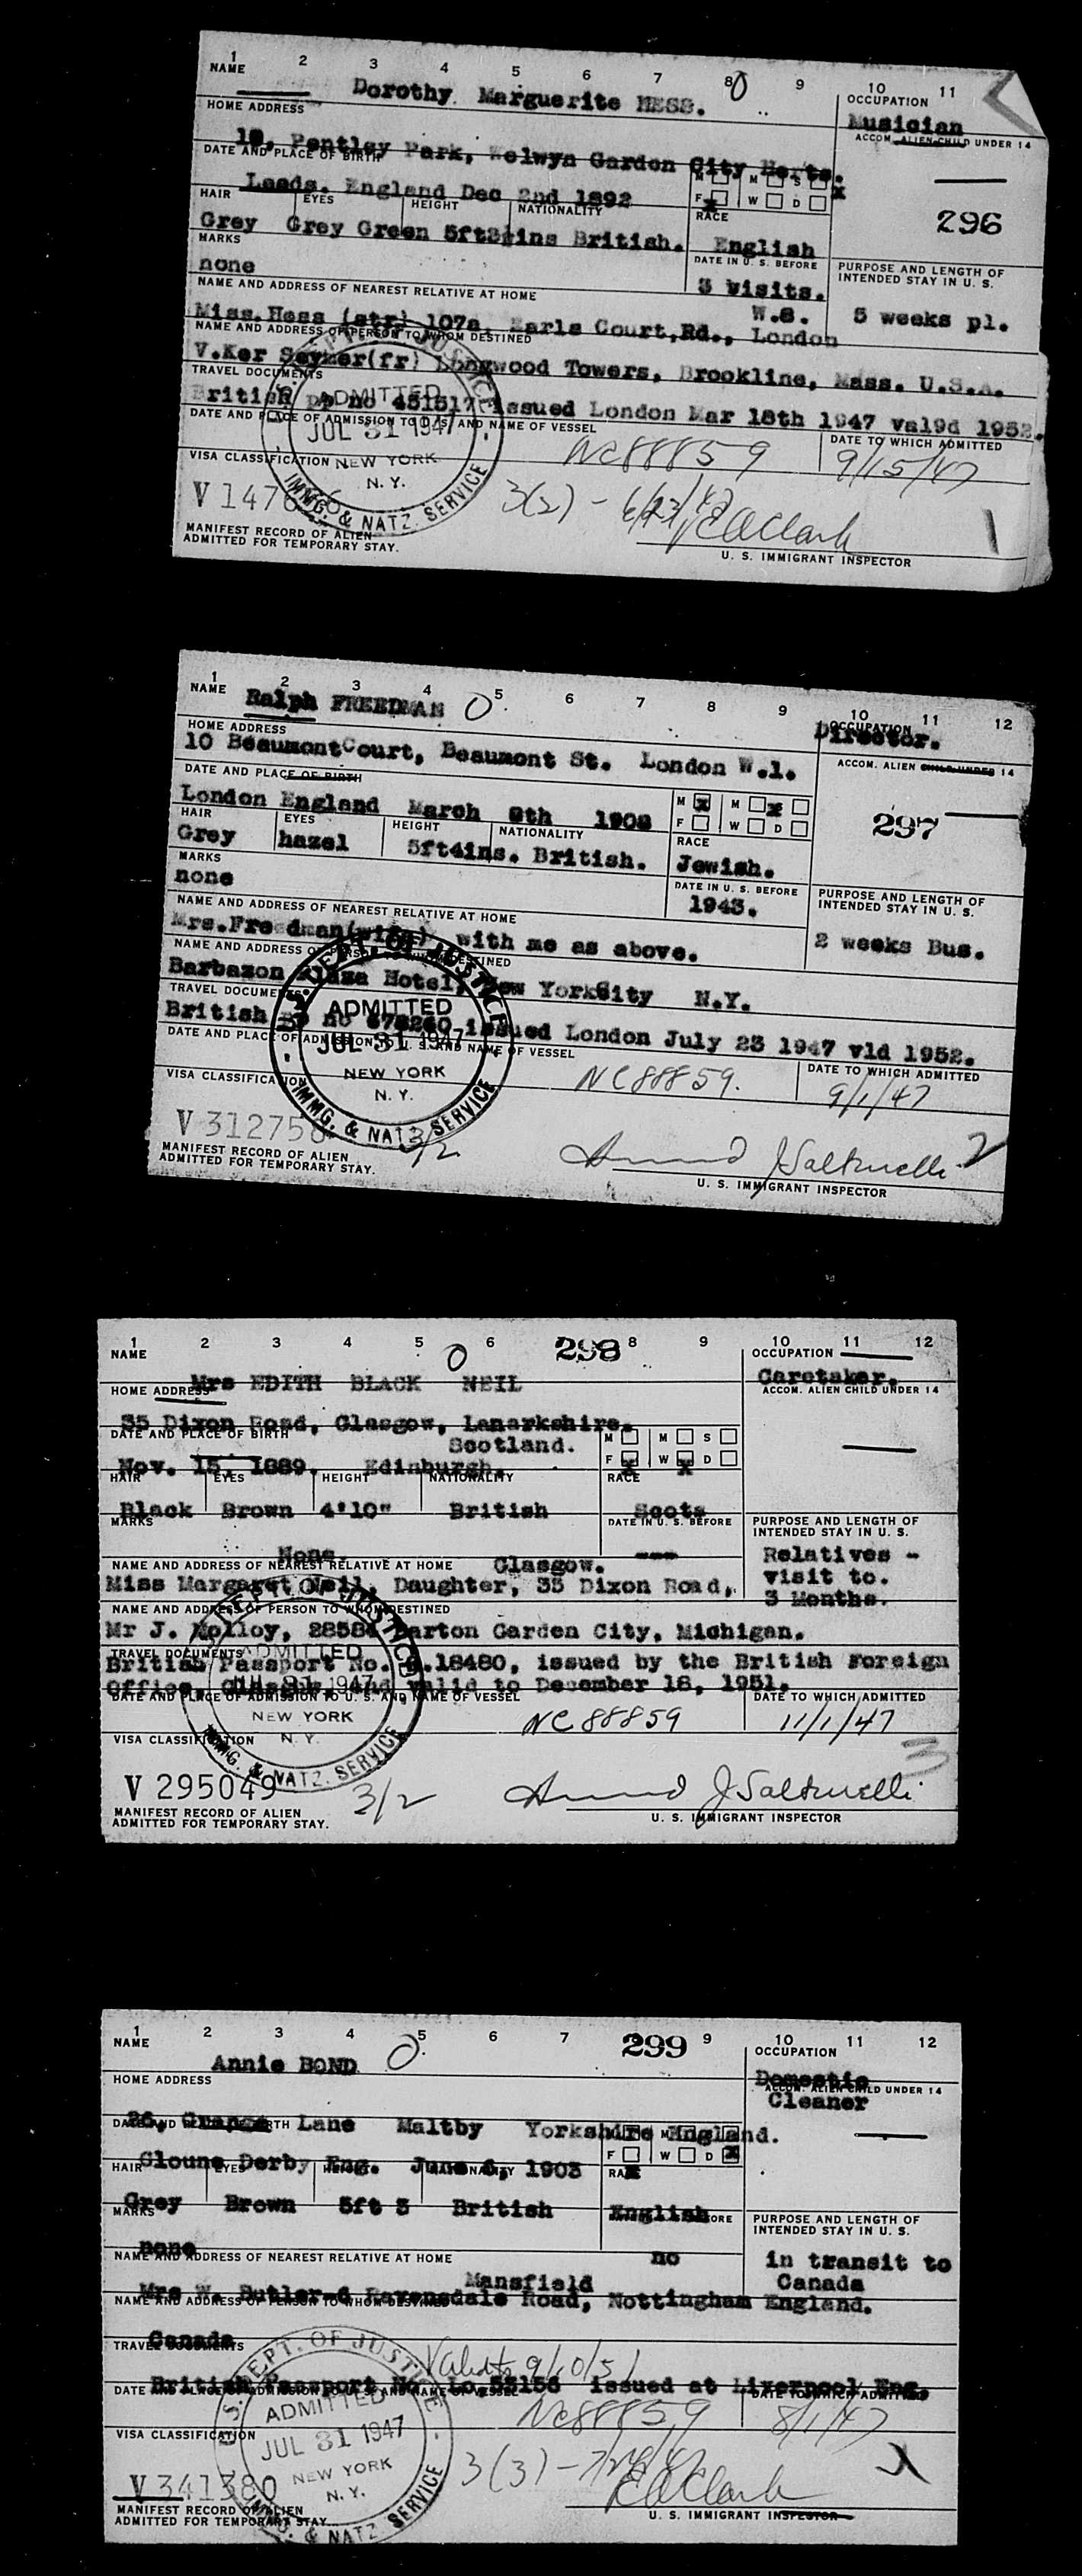 1 2 3 4 5 6 7 8 9 10 11
NAME Dorothy Marguerite HESS. 0 OCCUPATION
HOME ADDRESS Musician
ACCOM. ALIEN CHILD UNDER 14
Pentley Park, Welwyn Garden City Herts.
DATE AND PLACE OF BIRTH
Leeds. England Dec 2nd 1892 M F x M S x W D
HAIR EYES HEIGHT NATIONALITY RACE
Grey Grey Green British. English 296
MARKS DATE IN U. S. BEFORE PURPOSE AND LENGTH OF
none 3 visits. INTENDED STAY IN U. S.
NAME AND ADDRESS OF NEAREST RELATIVE AT HOME
Miss.Hess (str) 107a, Earls Court,Rd., London W.8. 5 weeks pl.
NAME AND ADDRESS OF PERSON TO WHOM DESTINED
V.Ker Seymer(fr) Longwood Towers, Brookline, Mass. U.S.A.
TRAVEL DOCUMENTS
British pp no 451517 issued London Mar 18th 1947 val9d 1952.
DATE AND PLACE OF ADMISSION TO U. S. AND NAME OF VESSEL DATE TO WHICH ADMITTED
U.S. DEPT. OF JUSTICE ADMITTED JUL 31 1947 NEW YORK N. Y. IMMG. & NATZ. SERVICE
NC88859 9/15/47
VISA CLASSIFICATION
3(2) - 6/23/47 EAClark
MANIFEST RECORD OF ALIEN
ADMITTED FOR TEMPORARY STAY. U. S. IMMIGRANT INSPECTOR
1 2 3 4 5 6 7 8 9 10 11 12
NAME Ralph FREEDMAN 0 OCCUPATION
HOME ADDRESS Director.
10 Beaumont Court, Beaumont St. London W.1. ACCOM. ALIEN CHILD UNDER 14
DATE AND PLACE OF BIRTH
London England March 8th 1902 M x M x F W D
HAIR EYES HEIGHT NATIONALITY RACE 297
Grey hazel 5ft4ins. British. Jewish.
MARKS DATE IN U. S. BEFORE PURPOSE AND LENGTH OF
none 1943. INTENDED STAY IN U. S.
NAME AND ADDRESS OF NEAREST RELATIVE AT HOME
Mrs.Freedman(wife) with me as above. 2 weeks Bus.
NAME AND ADDRESS OF PERSON TO WHOM DESTINED
Barbazon Plaza Hotel, New YorkCity N.Y.
TRAVEL DOCUMENTS
British pp no 678260 issued London July 23 1947 vld 1952.
DATE AND PLACE OF ADMISSION TO U. S. AND NAME OF VESSEL DATE TO WHICH ADMITTED
U.S. DEPT. OF JUSTICE ADMITTED JUL 31 1947 NEW YORK N. Y. IMMG. & NATZ. SERVICE
NC88859. 9/1/47
VISA CLASSIFICATION
3/2 2
MANIFEST RECORD OF ALIEN
ADMITTED FOR TEMPORARY STAY. U. S. IMMIGRANT INSPECTOR
1 2 3 4 5 6 298 8 9 10 11 12
NAME 0 OCCUPATION
HOME ADDRESS Mrs EDITH BLACK NEIL Caretaker.
ACCOM. ALIEN CHILD UNDER 14
35 Dixon Road, Glasgow, Lanarkshire,
DATE AND PLACE OF BIRTH Scotland.
Nov. 15, 1889. Edinburgh. M M S F x W x D
HAIR EYES HEIGHT NATIONALITY RACE
Black Brown 4'10" British Scots
MARKS DATE IN U. S. BEFORE PURPOSE AND LENGTH OF
None. --- INTENDED STAY IN U. S.
NAME AND ADDRESS OF NEAREST RELATIVE AT HOME Glasgow. Relatives -
Miss Margaret Neil, Daughter, 35 Dixon Road, visit to.
3 Months.
NAME AND ADDRESS OF PERSON TO WHOM DESTINED
Mr J. Molloy, 28584 Barton Garden City, Michigan.
TRAVEL DOCUMENTS
British Passport No. .18480, issued by the British Foreign
Office, Glasgow, and valid to December 18, 1951.
DATE AND PLACE OF ADMISSION TO U. S. AND NAME OF VESSEL DATE TO WHICH ADMITTED
U.S. DEPT. OF JUSTICE ADMITTED JUL 31 1947 NEW YORK N. Y. IMMG. & NATZ. SERVICE
NC 88859 11/1/47
VISA CLASSIFICATION 3
V 295049 3/2
MANIFEST RECORD OF ALIEN
ADMITTED FOR TEMPORARY STAY. U. S. IMMIGRANT INSPECTOR
1 2 3 4 5 6 7 299 9 10 11 12
NAME Annie BOND 0 OCCUPATION
HOME ADDRESS Domestic
ACCOM. ALIEN CHILD UNDER 14
Cleaner
26, Grange Lane Maltby Yorkshire England.
DATE AND PLACE OF BIRTH
Cloune Derby Eng. June 6, 1903 F W D x
HAIR EYES HEIGHT NATIONALITY RACE
Grey Brown 5ft 3 British English
MARKS PURPOSE AND LENGTH OF
none no INTENDED STAY IN U. S.
NAME AND ADDRESS OF NEAREST RELATIVE AT HOME in transit to
Mansfield Canada
Mrs W. Butler 6 Ravensdale Road, Nottingham England.
NAME AND ADDRESS OF PERSON TO WHOM DESTINED
Canada
TRAVEL DOCUMENTS
Valid to 9/10/51
British Passport No. Lo 53156 issued at Liverpool Eng.
DATE AND PLACE OF ADMISSION TO U. S. AND NAME OF VESSEL DATE TO WHICH ADMITTED
U.S. DEPT. OF JUSTICE ADMITTED JUL 31 1947 NEW YORK N. Y. IMMG. & NATZ. SERVICE
NC88859 8/1/47
VISA CLASSIFICATION
V 341380 EAClark
MANIFEST RECORD OF ALIEN
ADMITTED FOR TEMPORARY STAY. U. S. IMMIGRANT INSPECTOR